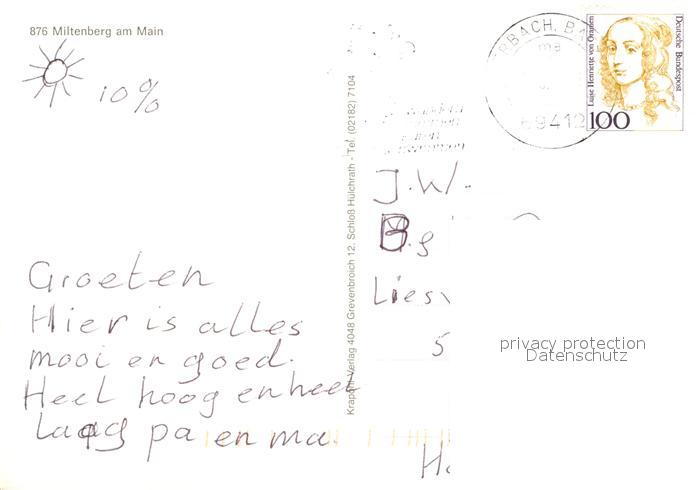 876 Miltenberg am Main
10%
Groeten
Hier is alles
mooi en goed.
Heel hoog en heel
laag pa en ma.
Krapohl-Verlag 4048 Grevenbroich 12, Schloß Hülchrath - Tel. (02182) 7104
RBACH, BA
ma
69412
Luise Henriette von Oranien
Deutsche Bundespost
100
J.W.
B.
Lies
5
H
privacy protection
Datenschutz